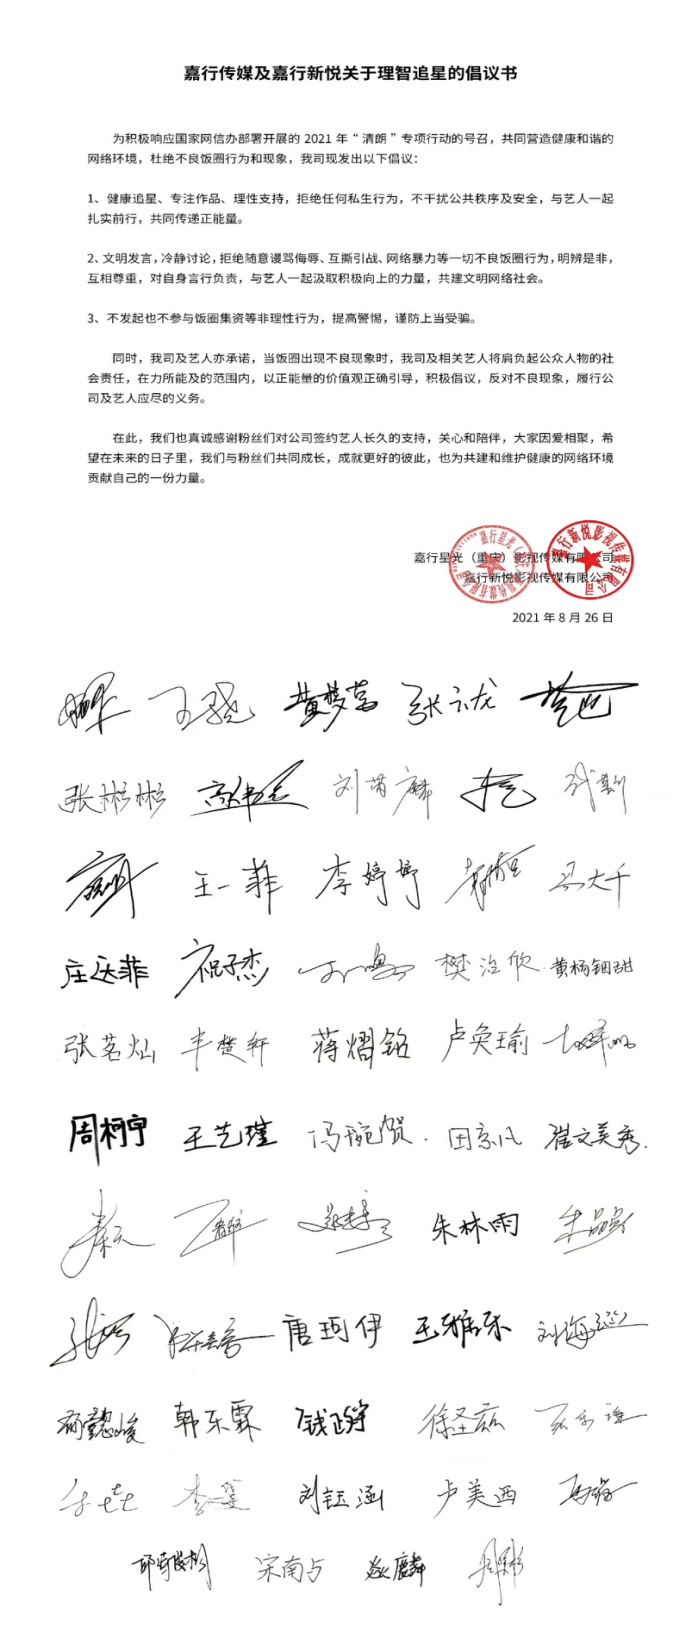 嘉行传媒及嘉行新悦关于理智追星的倡议书
为积极响应国家网信办部署开展的 2021 年“清朗”专项行动的号召，共同营造健康和谐的
网络环境，杜绝不良饭圈行为和现象，我司现发出以下倡议：
1、健康追星、专注作品、理性支持，拒绝任何私生行为，不干扰公共秩序及安全，与艺人一起
扎实前行，共同传递正能量。
2、文明发言，冷静讨论，拒绝随意谩骂侮辱、互撕引战、网络暴力等一切不良饭圈行为，明辨是非，
互相尊重，对自身言行负责，与艺人一起汲取积极向上的力量，共建文明网络社会。
3、不发起也不参与饭圈集资等非理性行为，提高警惕，谨防上当受骗。
同时，我司及艺人亦承诺，当饭圈出现不良现象时，我司及相关艺人将肩负起公众人物的社
会责任，在力所能及的范围内，以正能量的价值观正确引导，积极倡议，反对不良现象，履行公
司及艺人应尽的义务。
在此，我们也真诚感谢粉丝们对公司签约艺人长久的支持，关心和陪伴，大家因爱相聚，希
望在未来的日子里，我们与粉丝们共同成长，成就更好的彼此，也为共建和维护健康的网络环境
贡献自己的一份力量。
嘉行星光（重庆）影视传媒有限公司
嘉行新悦影视传媒有限公司
2021 年 8 月 26 日
王骁 黄梦莹 张云龙
张彬彬 刘芮麟
王一菲 李婷婷 马大千
庄达菲 祝子杰 樊治欣 黄杨钿甜
张茗灿 丰楚轩 蒋熠铭 卢奂瑜
周柯宇 王艺瑾 冯琬贺 田京凡 崔文美秀
娄 朱林雨
唐珂伊 王雅乐 刘海
韩东霖 钱正浩 徐圣兹
刘钰涵 卢美西
宋南占 麟